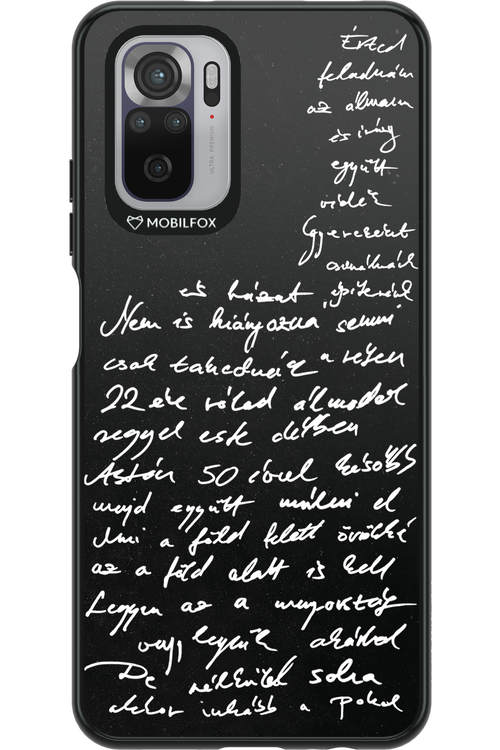 ULTRA PREMIUM
MOBILFOX
Érted
feladnám
az álmaim
és így
együtt
vidék
Gyerekeket
csinálnánk
és házat építenénk
Nem is hiányozna semmi
csak tekednék a részen
22 éve rólad álmodok
reggel este délben
Aztán 50 évvel később
majd együtt múlni el
Ami a föld felett örökké
az a föld alatt is kell
Legyen az a mennyország
vagy legyünk akárhol
De nélküled soha
akkor inkább a pokol